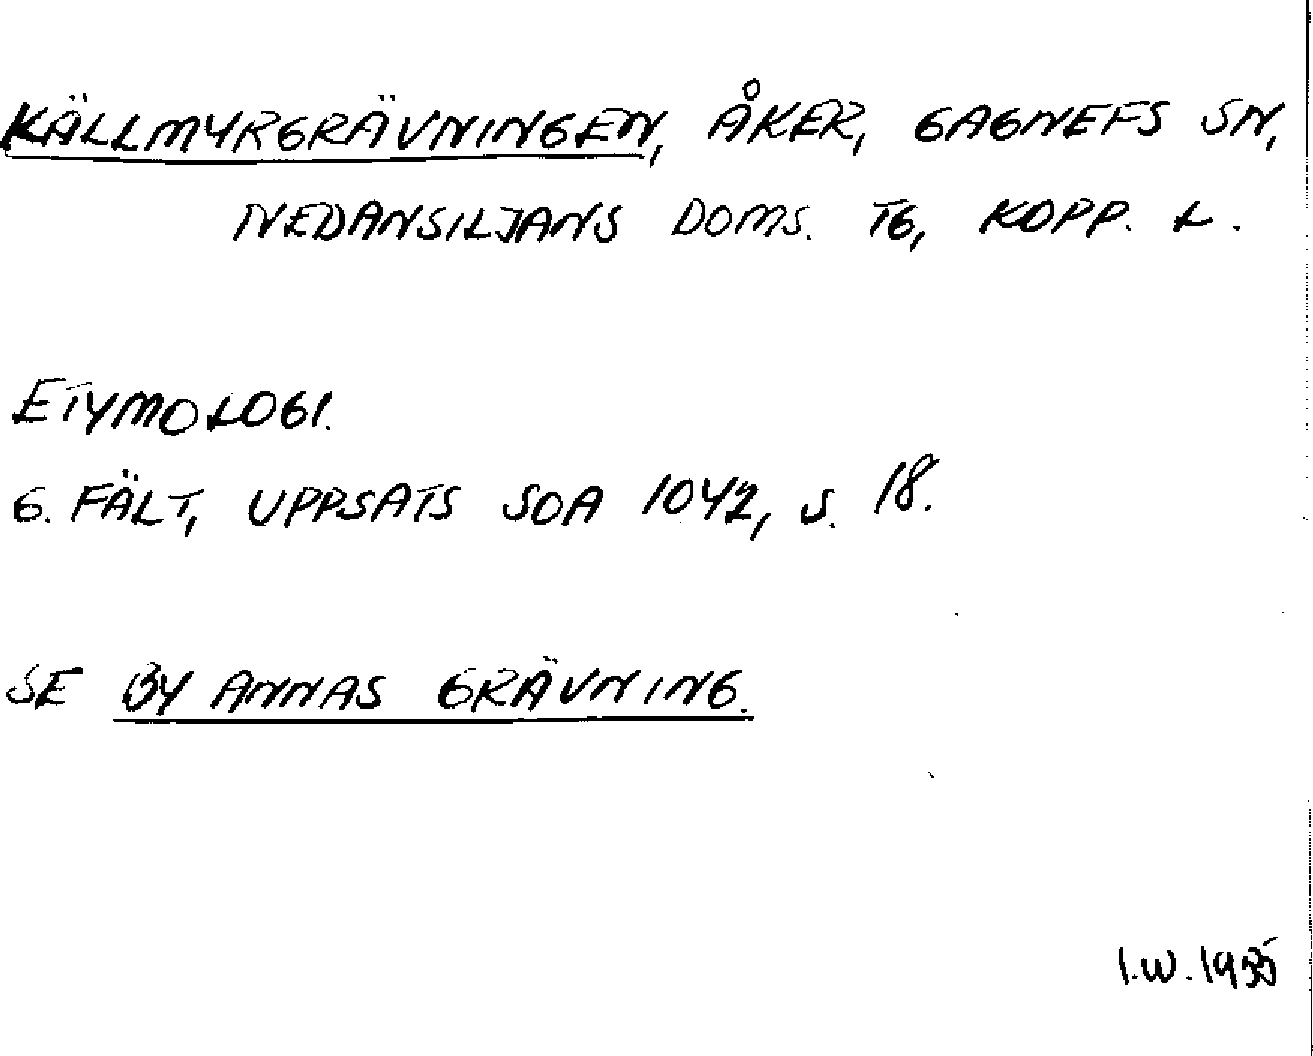 KÄLLMYRGRÄVNINGEN, ÅKER, GAGNEFS SN,
NEDANSILJANS DOMS. TG, KOPP. L.
ETYMOLOGI.
G. FÄLT, UPPSATS SOA 1042, S. 18.
SE BY ANNAS GRÄVNING.
I.W. 1955